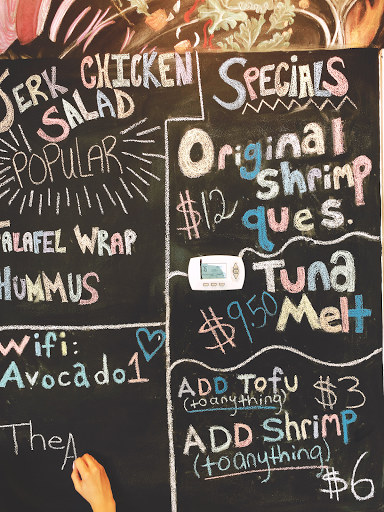 Jerk Chicken
Salad
POPULAR
Falafel Wrap
Hummus
Wifi:
Avocado1
The A
Specials
Original
shrimp
$12 ques.
Tuna
$9.50 Melt
ADD Tofu $3
(to anything)
ADD Shrimp
(to anything)
$6